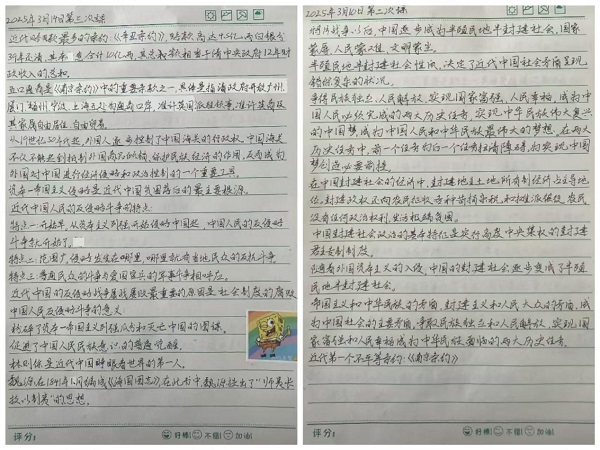 2025年3月14日第三次课
近代时赔款最多的条约:《辛丑条约》,赔款高达4.5亿两白银分
39年还清,其本息合计10亿两,其总数额相当于清中央政府12年财
政收入的总和。
五口通商是《南京条约》中的重要条款之一,具体是指清政府开放广州、
厦门、福州、宁波、上海五处为通商口岸,准许英国派驻领事,准许英商及
其家属自由居住,自由贸易。
从19世纪50年代起,外国人逐步控制了中国海关的行政权,中国海关
不仅不能起到抵制外国商品倾销,保护民族经济的作用,反而成为
外国对中国进行经济侵略和政治控制的一个重要工具。
资本-帝国主义侵略是近代中国贫困落后的最主要根源。
近代中国人民的反侵略斗争的特点:
特点一:开始早,从资本主义列强开始侵略中国起,中国人民的反侵略
斗争就开始了。
特点二:范围广,侵略发生在哪里,哪里就有当地民众的反抗斗争
特点三:普通民众的斗争与爱国官兵的军事斗争相呼应。
近代中国的反侵略战争屡战屡败最重要的原因是社会制度的腐败
中国人民反侵略斗争的意义
粉碎了资本-帝国主义列强瓜分和灭亡中国的图谋。
促进了中国人民民族意识的普遍觉醒。
林则徐是近代中国睁眼看世界的第一人。
魏源,在1841年1月编成《海国图志》,在此书中,魏源提出了“师夷长
技以制夷”的思想。
评分:
好棒! 不错! 加油!
2025年3月10日第二次课
鸦片战争以后,中国逐步成为半殖民地半封建社会,国家
蒙辱、人民蒙难、文明蒙尘。
半殖民地半封建社会性质,决定了近代中国社会矛盾呈现
错综复杂的状况。
争得民族独立、人民解放,实现国家富强、人民幸福,成为中
国人民必须完成的两大历史任务,实现中华民族伟大复兴
的中国梦成为中国人民和中华民族最伟大的梦想。在两大
历史任务中,前一个任务为后一个任务扫清障碍,为实现中国
梦创造必要前提。
在中国封建社会的经济中,封建地主土地所有制经济占主导地
位。封建政权还向农民征收各种苛捐杂税,和加派徭役。农民
没有任何政治权利,生活极端贫困。
中国封建社会政治的基本特征是实行高度中央集权的封建
君主专制制度。
随着外国资本主义的入侵,中国的封建社会逐步变成了半殖
民地半封建社会。
帝国主义和中华民族的矛盾,封建主义和人民大众的矛盾,成
为中国社会的主要矛盾,争取民族独立和人民解放,实现国
家富强和人民幸福成为中华民族面临的两大历史任务。
近代第一个不平等条约:《南京条约》
评分:
好棒! 不错! 加油!